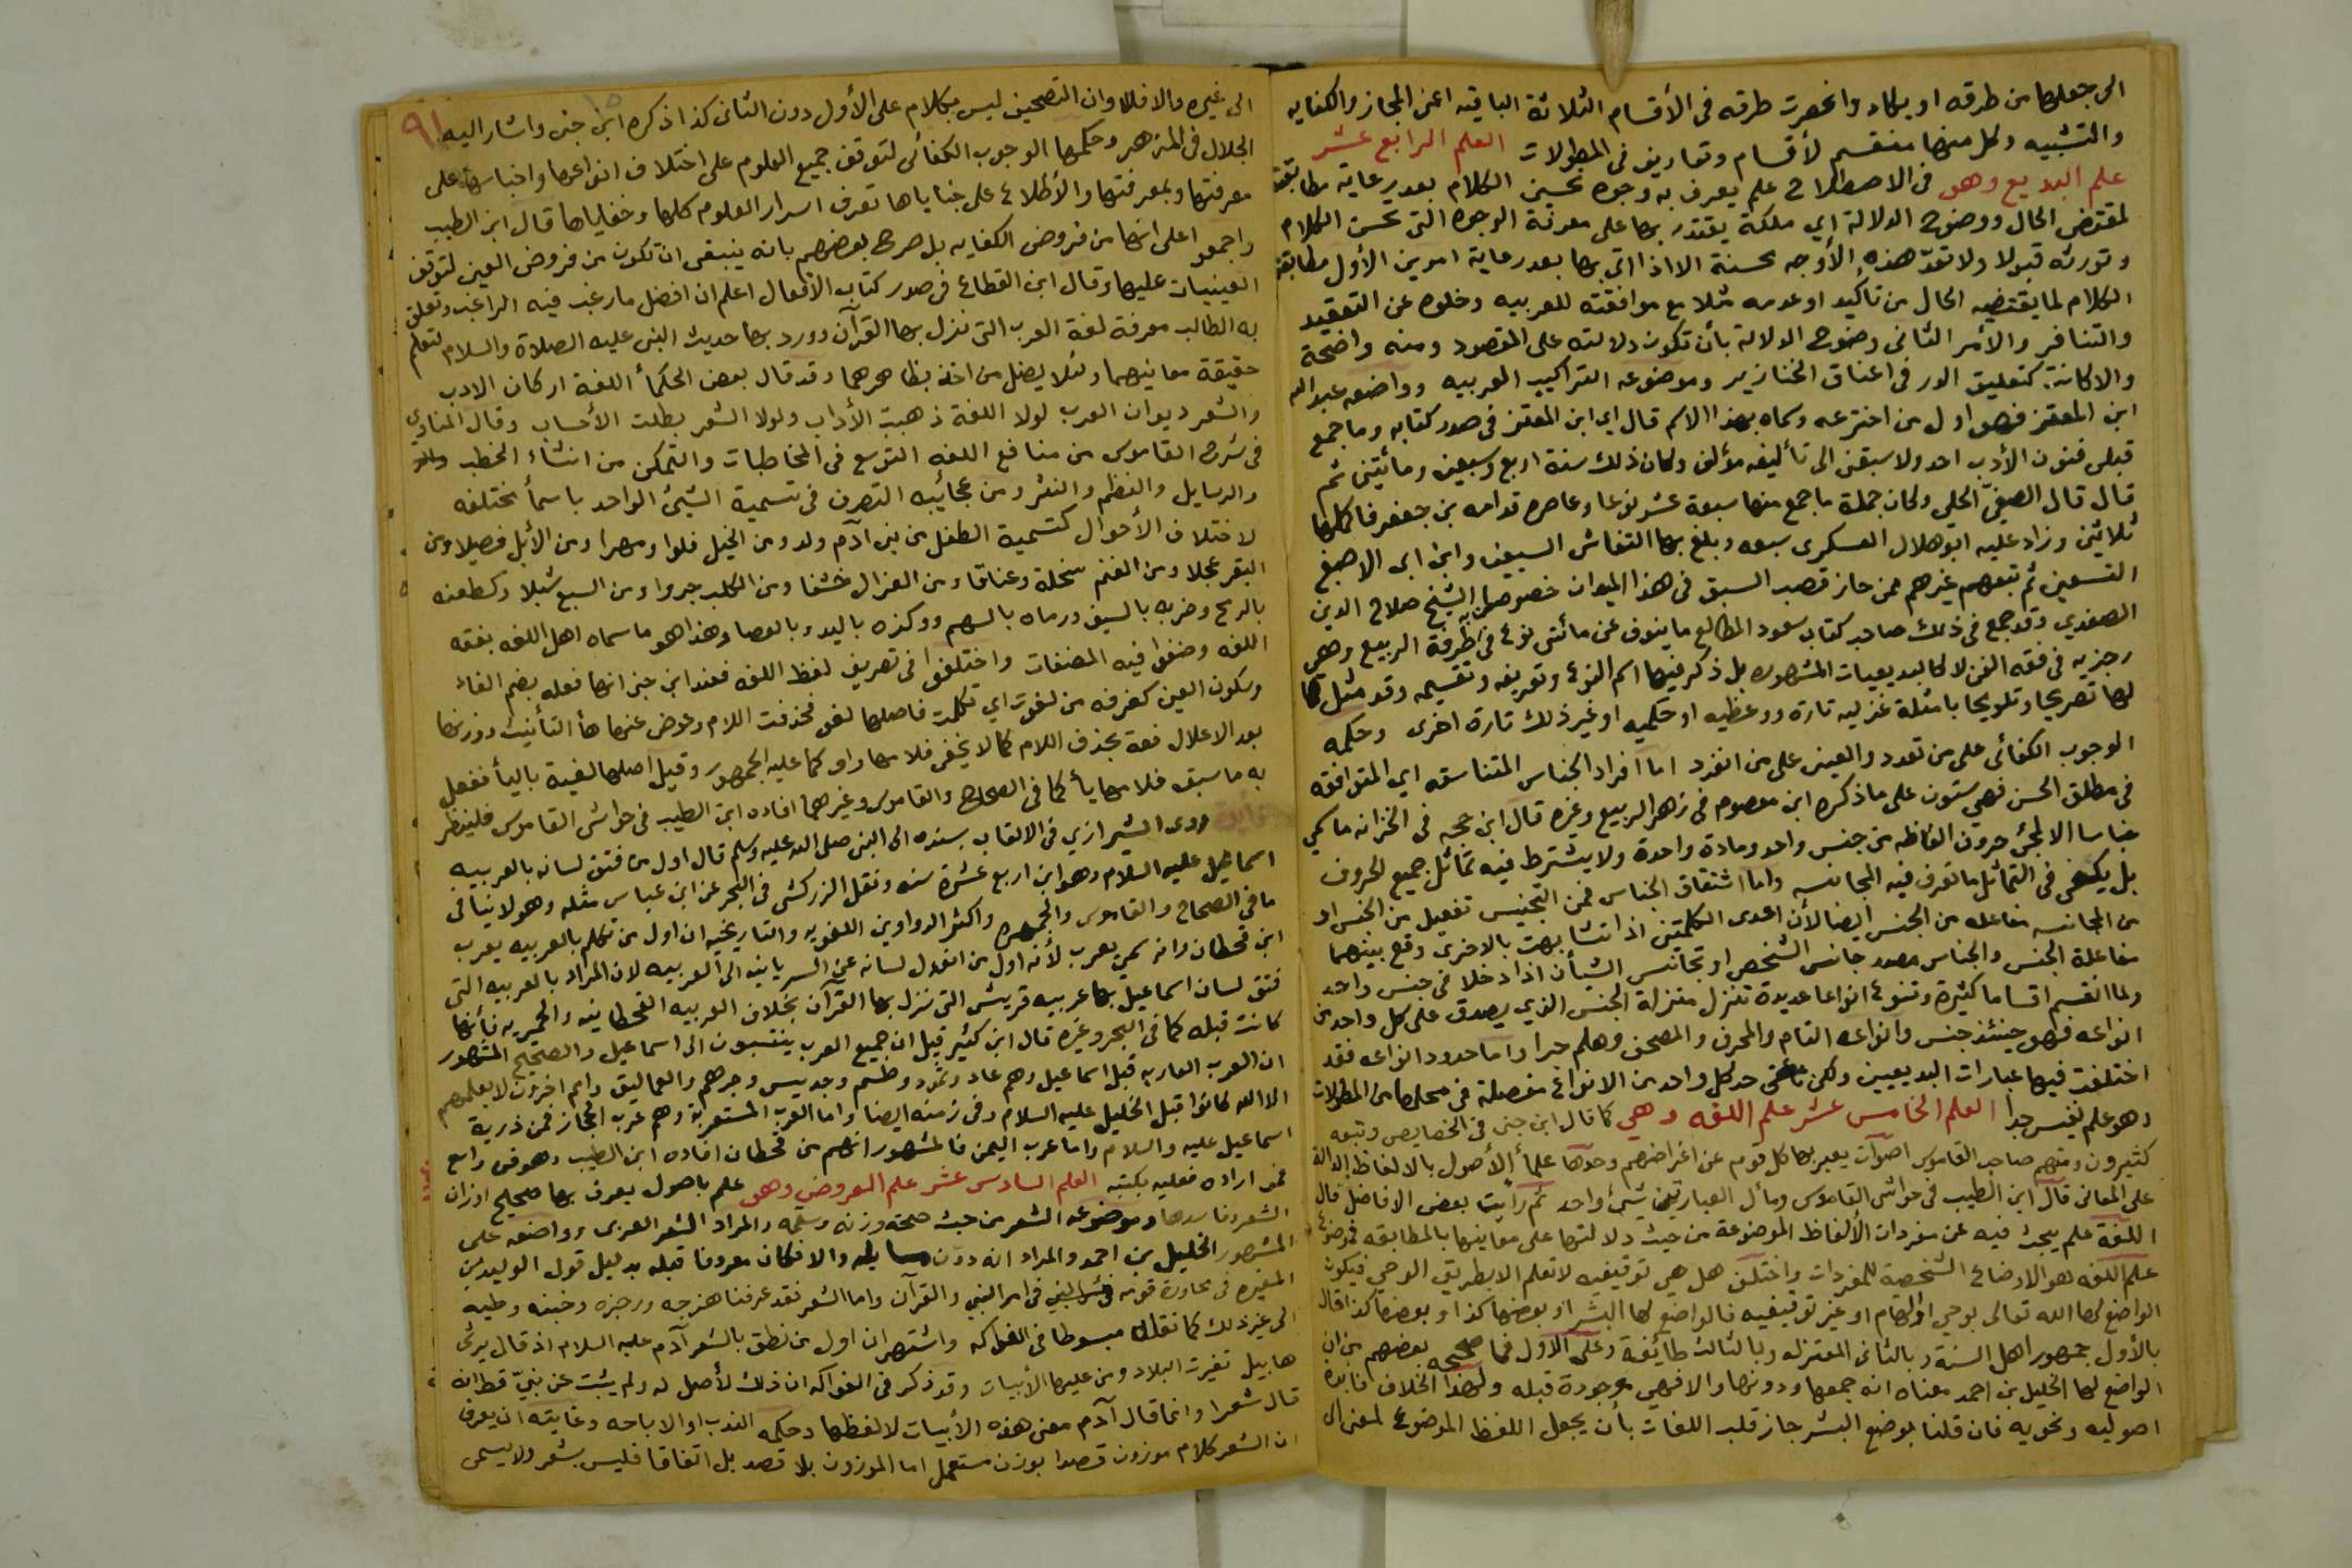 الى جعلها من طرقه او يكاد وانحصرت طرقه فى الأقسام الثلاثة الباقيه اعنى المجاز والكنايه
والتشبيه وكل منها منقسم لأقسام وتعاريف فى المطولات العلم الرابع عشر
علم البديع وهو فى الاصطلاح علم يعرف به وجوه تحسين الكلام بعد رعاية مطابقته
لمقتضى الحال ووضوح الدلالة اي ملكة يقتدر بها على معرفة الوجوه التى تحسن الكلام
وتورثه قبولا ولا تعدّ هذه الأوجه محسنة الا اذا اتى بها بعد رعاية امرين الأول مطابقة
الكلام لما يقتضيه الحال من تأكيد او عدمه مثلا مع موافقته للعربيه وخلوه عن التعقيد
والتنافر والأمر الثانى وضوح الدلالة بأن تكون دلالته على المقصود ومنه واضحة
والا كانت كتعليق الدر فى اعناق الخنازير وموضوعه التراكيب العربيه وواضعه عبد الله
ابن المعتز فهو اول من اخترعه وسماه بهذا الاسم قال اي ابن المعتز فى صدر كتابه وما جمع
قبلى فنون الأدب احد ولا سبقنى الى تأليفه مؤلف وكان ذلك سنة اربع وسبعين ومائتين ثم
قال قال الصفىّ الحلى وكان جملة ما جمع منها سبعة عشر نوعا وعاصره قدامه بن جعفر فاكملها
ثلاثين وزاد عليه ابو هلال العسكرى سبعه وبلغ بها التفاشى السبعين وابن ابى الاصبع
التسعين ثم تبعهم غيرهم ممن حاز قصب السبق فى هذا الميدان خصوصا الشيخ صلاح الدين
الصفدي وقد جمع فى ذلك صاحب كتاب سعود المطالع ما ينوف عن مائتى نوع فى طرفة الربيع وهى
رجزيه فى فقه الفن لا كالبديعيات المشهوره بل ذكر فيها اسم النوع وتعريفه وتقسيمه وقد مثل
لها تصريحا وتلويحا بامثلة غزليه تارة ووعظيه او حكميه او غير ذلك تارة اخرى وحكمه
الوجوب الكفائى على من تعدد والعينى على من انفرد اما افراد الجناس المتناسقه اي المتوافقه
فى مطلق الحسن فهي ستون على ما ذكره ابن معصوم فى زهر الربيع وغيره قال ابن حجه فى الخزانه ما سمي
جناسا الا لمجئ حروف الفاظه من جنس واحد ومادة واحدة ولا يشترط فيه تماثل جميع الحروف
بل يكفى فى التماثل ما تعرف فيه المجانسه واما اشتقاق الجناس فمن التجنيس تفعيل من الجنس او
من المجانسه مفاعله من الجنس ايضا لأن احدى الكلمتين اذا تشابهت بالاخرى وقع بينهما
مفاعلة الجنس والجناس مصدر جانس الشخص او تجانس الشيآن اذا دخلا فى جنس واحد
ولما انقسم اقساما كثيرة وتنوع انواعا عديدة تنزل منزلة الجنس الذي يصدق على كل واحد من
انواعه فهو حينئذ جنس وانواعه التام والمحرف والمصحف وهلم جرا واما حدود انواعه فقد
اختلفت فيها عبارات البديعيين ولكن حد كل واحد من الانواع مفصلة فى محلها من المطولات
وهو علم نفيس جدا العلم الخامس عشر علم اللغه وهي كما قال ابن جنى فى الخصايص وتبعه
كثيرون ومنهم صاحب القاموس اصوات يعبر بها كل قوم عن اغراضهم وحدها علمأ الأصول بالالفاظ الدالة
على المعانى قال ابن الطيب فى حواشى القاموس ومأل العبارتين شئ واحد ثم رأيت بعض الافاضل قال
اللغة علم يبحث فيه عن مفردات الألفاظ الموضوعة من حيث دلالتها على معانيها بالمطابقه فموضوع
علم اللغه هو الاوضاع الشخصية للمفردات واختلف هل هي توقيفيه لا تعلم الا بطريق الوحي فيكون
الواضع لها الله تعالى بوحي او الهام او غير توقيفيه فالواضع لها البشر او بعضها كذا وبعضها كذا قال
بالأول جمهور اهل السنة وبالثانى المعتزله وبالثالث طائفة وعلى الاول فما صححه بعضهم من ان
الواضع لها الخليل بن احمد معناه انه جمعها ودونها والا فهي موجودة قبله ولهذا الخلاف فائدة
اصوليه ونحويه فان قلنا بوضع البشر جاز قلب اللغات بأن يجعل اللفظ الموضوع لمعنى الى
٩١
الى غيره والا فلا وان التصحيف ليس بكلام على الأول دون الثانى كذا ذكره ابن جنى واشار اليه
الجلال فى المزهر وحكمها الوجوب الكفائى لتوقف جميع العلوم على اختلاف انواعها واجناسها على
معرفتها وبمعرفتها والأطلاع على خباياها تعرف اسرار العلوم كلها وخفاياها قال ابن الطيب
واجمعوا على انها من فروض الكفايه بل صرح بعضهم بانه ينبغى ان تكون من فروض العين لتوقف
العينيات عليها وقال ابن القطاع فى صدر كتاب الأفعال اعلم ان افضل ما رغب فيه الراغب وتعلق
به الطالب معرفة لغة العرب التى نزل بها القرآن وورد بها حديث النبى عليه الصلاة والسلام لتعلم
حقيقة معانيهما ولئلا يضل من اخذ بظاهرهما وقد قال بعض الحكمأ اللغة اركان الادب
والشعر ديوان العرب لولا اللغة ذهبت الأداب ولولا الشعر بطلت الأحساب وقال المناوي
فى شرح القاموس من منافع اللغه التوسع فى المخاطبات والتمكن من انشاء الخطب
والرسايل والنظم والنثر ومن عجائبه التصرف فى تسمية الشئ الواحد باسمأ مختلفه
لاختلاف الأحوال كتسمية الطفل من بنى آدم ولد ومن الخيل فلوا ومهرا ومن الأبل فصيلا ومن
البقر عجلا ومن الغنم سخلة وعناقا ومن الغزال خشفا ومن الكلب جروا ومن السبع شبلا وكطعنه
بالرمح وضربه بالسيف ورماه بالسهم ووكزه باليد وبالعصا وهذا هو ما سماه اهل اللغه بفقه
اللغه وصنفوا فيه المصنفات واختلفوا فى تصريف لفظ اللغه فعند ابن جنى انها فعله بضم الفاء
وسكون العين كغرفه من لغوت اي تكلمت فاصلها لغو فحذفت اللام وعوض عنها هأ التأنيث ووزنها
بعد الاعلال فعة بحذف اللام كما لا يخفى فلامها واو كما عليه الجمهور وقيل اصلها لغية باليأ ففعل
به ما سبق فلامها يأ كما فى الصحاح والقاموس وغيرهما افاده ابن الطيب فى حواشى القاموس فلينظر
روى الشيرازي فى الالقاب بسنده الى النبى صلى الله عليه وسلم قال اول من فتق لسانه بالعربيه
اسماعيل عليه السلام وهو ابن اربع عشرة سنه ونقل الزركشى فى البحر عن ابن عباس مثله وهو لا ينافى
ما فى الصحاح والقاموس والجمهره واكثر الدواوين اللغويه والتاريخيه ان اول من تكلم بالعربيه يعرب
ابن قحطان وانه سمى يعرب لأنه اول من انعدل لسانه عن السريانيه الى العربيه لان المراد بالعربيه التى
فتق لسان اسماعيل بها عربيه قريش التى نزل بها القرآن بخلاف العربيه القحطانيه والحميريه فأنها
كانت قبله كما فى البحر وغيره قال ابن كثير قيل ان جميع العرب ينتسبون الى اسماعيل والصحيح المشهور
ان العرب العاربه قبل اسماعيل وهم عاد وثمود وطسم وجديس وجرهم والعماليق وامم اخرون لا يعلمهم
الا الله كانوا قبل الخليل عليه السلام وفى زمنه ايضا واما العرب المستعربة وهم عرب الحجاز فمن ذرية
اسماعيل عليه والسلام واما عرب اليمن فالمشهور انهم من قحطان افاده ابن الطيب وهو فن واسع
فمن اراده فعليه بكتبه العلم السادس عشر علم العروض وهو علم باصول يعرف بها صحيح اوزان
الشعر وفاسدها وموضوعه الشعر من حيث صحة وزنه وسقمه والمراد الشعر العربى وواضعه على
المشهور الخليل بن احمد والمراد انه دوّن مسايله والا فكان معروفا قبله بدليل قول الوليد بن
المغيره فى محاورة قومه فى امر النبي والقرآن واما الشعر فقد عرفنا هزجه ورجزه وخببه وطيه
الى غير ذلك كما نقله مبسوطا فى الفواكه واشتهر ان اول من نطق بالشعر آدم عليه السلام اذ قال يرثى
هابيل تغيرت البلاد ومن عليها الأبيات وقد ذكر فى الفواكه ان ذلك لأصل له ولم يثبت عن نبيّ قط انه
قال شعرا وانما قال آدم معنى هذه الأبيات لا لفظها وحكمه الندب او الاباحه وغايته ان يعرف
ان الشعر كلام موزون قصدا بوزن مستعمل اما الموزون بلا قصد بل اتفاقا فليس بشعر ولا يسمى